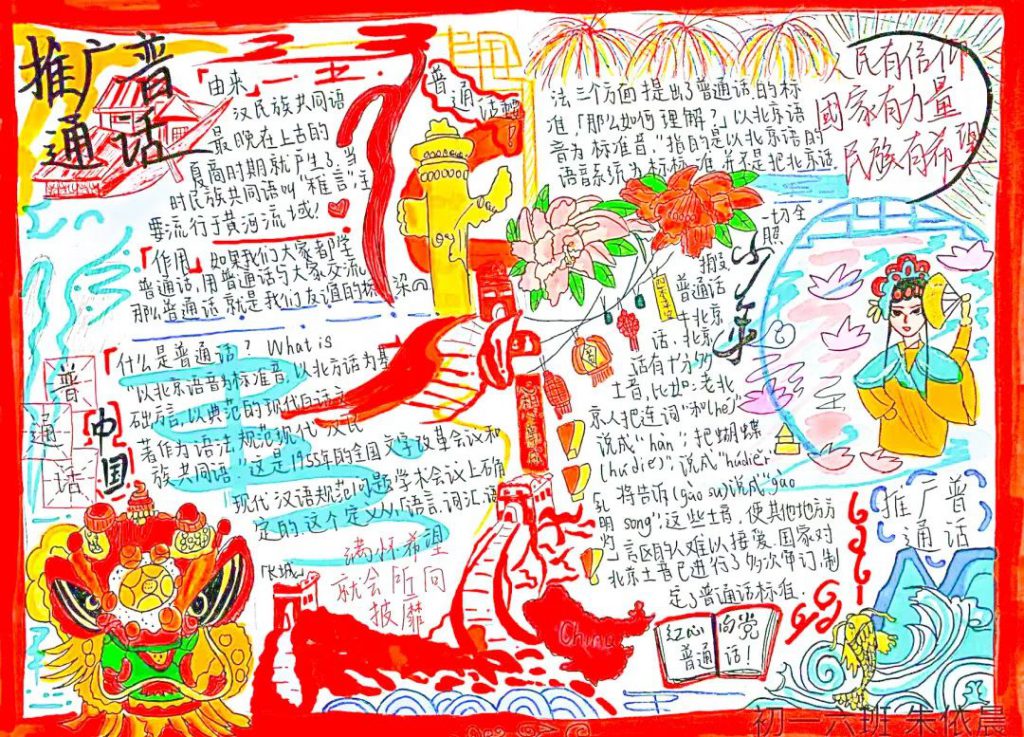 推广普
通话
「由来」
汉民族共同语
最晚在上古的
夏商时期就产生了。当
时民族共同语叫"雅言",主
要流行于黄河流域!
「作用」如果我们大家都学
普通话,用普通话与大家交流
那么普通话就是我们友谊的桥梁
「什么是普通话? What is
"以北京语音为标准音,以北方话为基
础方言,以典范的现代白话文
著作为语法规范现代汉民
族共同语。"这是1955年的全国文字改革会议和
现代汉语规范问题学术会议上确
定的,这个定义从「语言、词汇语
普
通
话
中
国
满怀希望
就会所向
披靡
「长城」
普通
法三个方面提出了普通话的标
准,「那么如何理解?」以北京语
音为标准音,"指的是以北京语的
语音系统为标标准,并不是把北京话
一切全
照
搬
普通话
话,
北京
话有十分多
土音,比如:老北
京人把连词"和(hé)"
说成"hàn",把蝴蝶
(húdié)"说成"húdiěr
将告诉(gào su)说成"gào
song",这些土音,使其他地方方
言区的人难以接受,国家对
北京土音已进行了多次审订,制
定了普通话标准.
人民有信仰
國家有力量
民族有希望
推广普
通话
China
红心向党
普通话!
初一六班 朱依晨